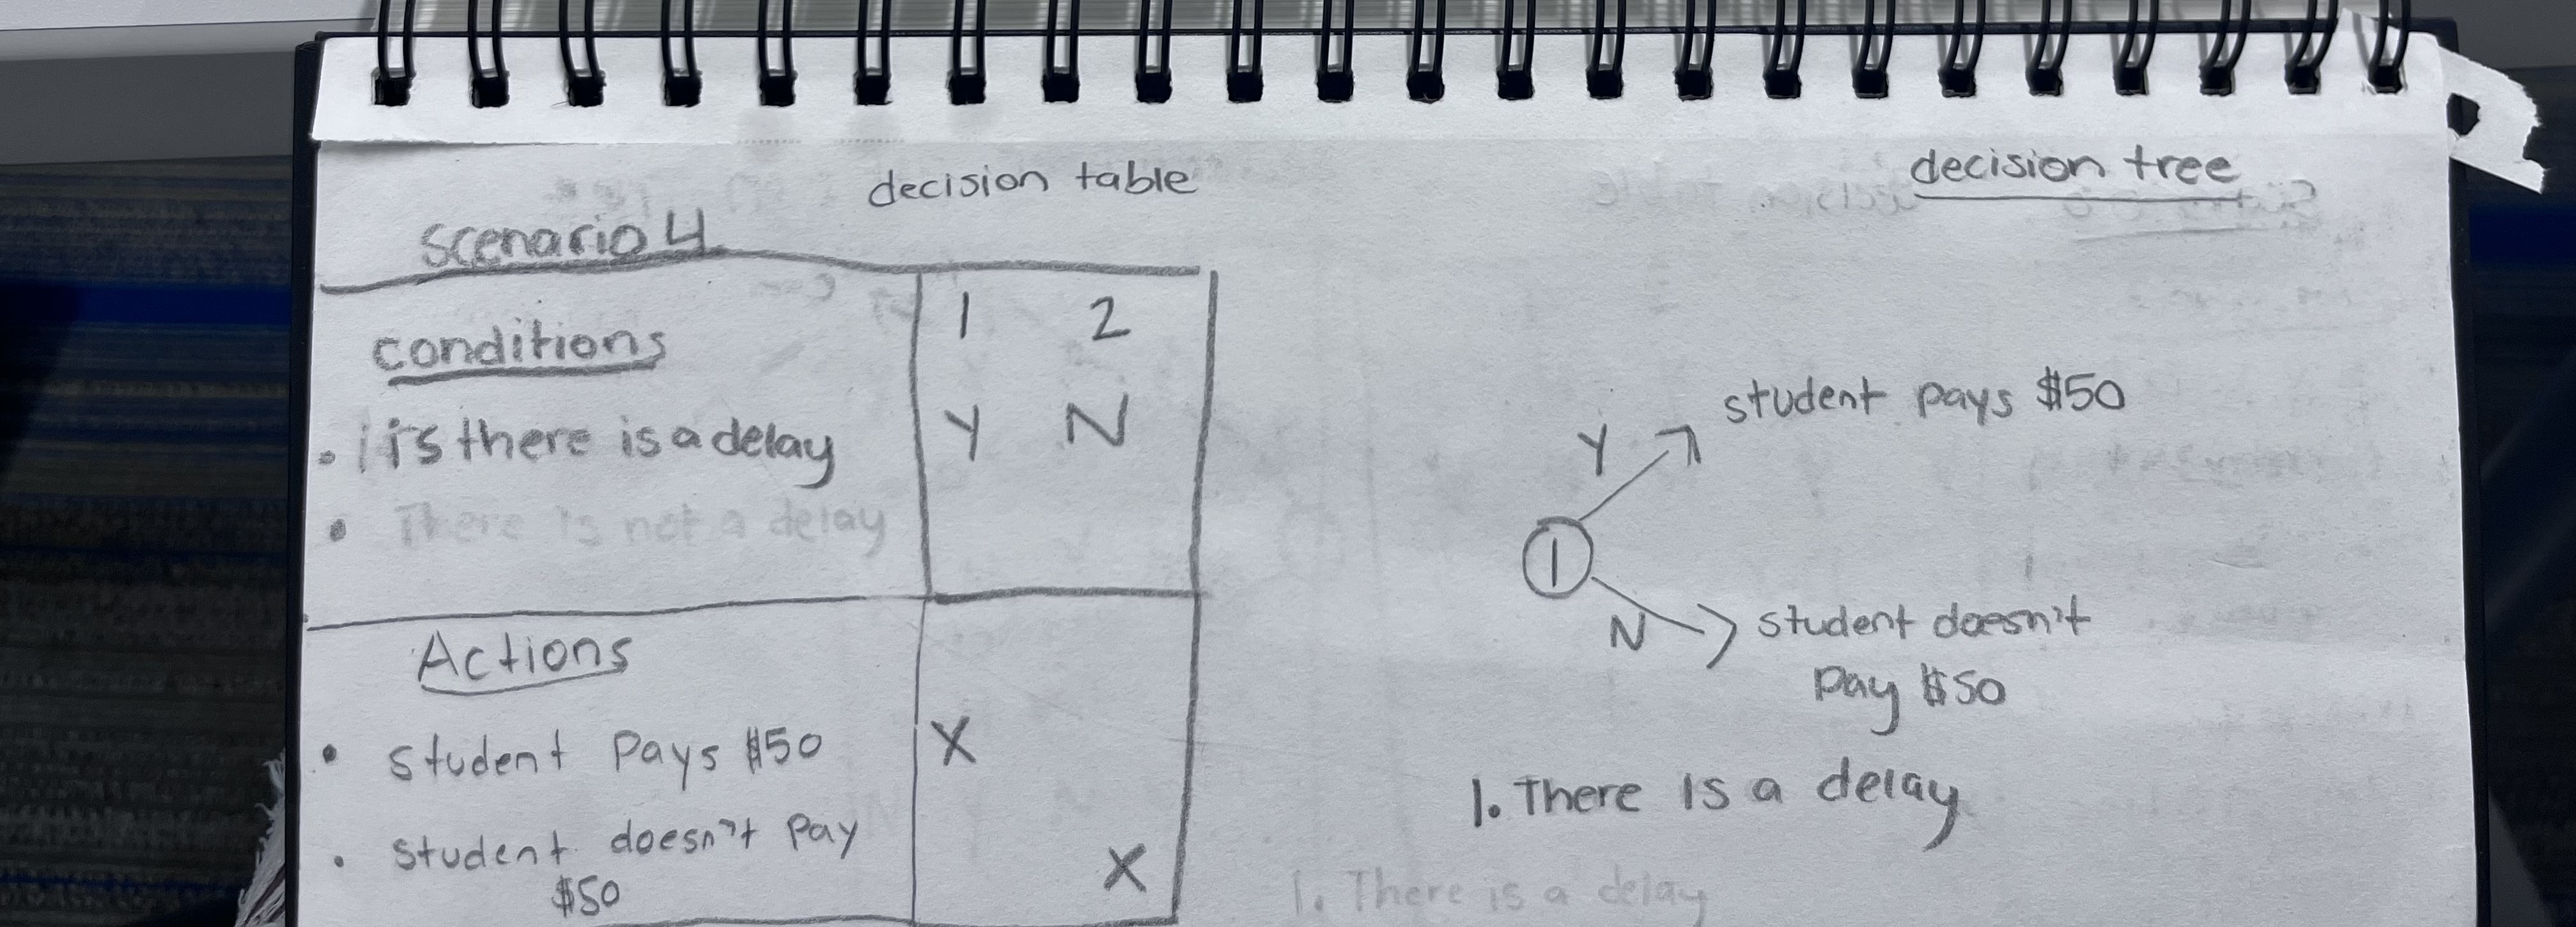 decision table
scenario 4
conditions
1 2
• is there is a delay Y N
• There is not a delay
Actions
• student Pays $50 X
• student doesn't Pay
$50 X
decision tree
student pays $50
Y
1
N
student doesn't
Pay $50
1. There is a delay
1. There is a delay